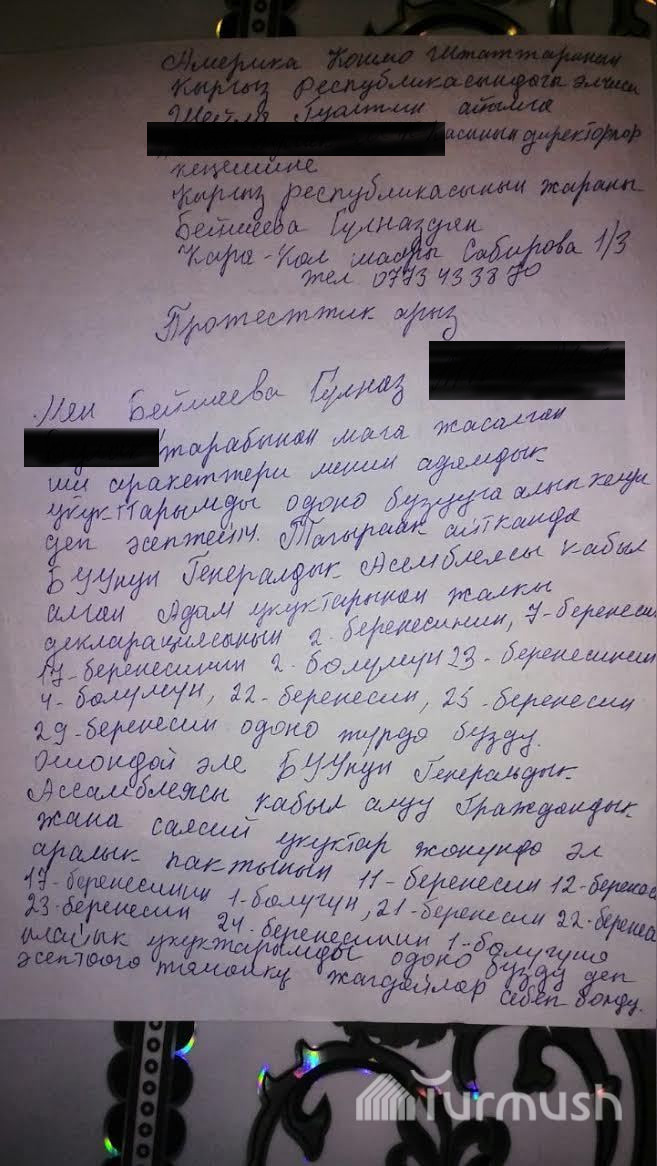 Америка Кошмо Штаттарынын
Кыргыз Республикасындагы элчиси
Шейла Гуалтни айымга
асынын директорлор
кеңешине
Кыргыз республикасынын жараны
Бейшеева Гүлназден
Кара-Кол шаары Сабирова 1/3
тел 0773 433870
Протесттик арыз
Мен Бейшеева Гүлназ
тарабынан мага жасалган
иш аракеттери менин адамдык
укуктарымды одоно бузууга алып келди
деп эсептейм. Тагыраак айтканда
БУУнун Генералдык Ассемблеясы кабыл
алган Адам укуктарынын жалпы
декларациясынын 2. беренесинин, 7-беренесин
17-беренесинин 2. бөлүмүн 23-беренесинин
4-бөлүмүн, 22-беренесин, 25-беренесин
29-беренесин одоно түрдө бузду.
Ошондой эле БУУнун Генеральдык
Ассамблеясы кабыл алуу Граждандык
жана саясий укуктар жөнүндө эл
аралык пактынын 11-беренесин 12-беренеси
17-беренесинин 1-бөлүгүн, 21-беренесин 22-берене
23-беренесин 24-беренесинин 1-бөлүгүнө
ылайык укуктарымды одоно бузду деп
эсептөөгө төмөнкү жагдайлар себеп болду.
Turmush